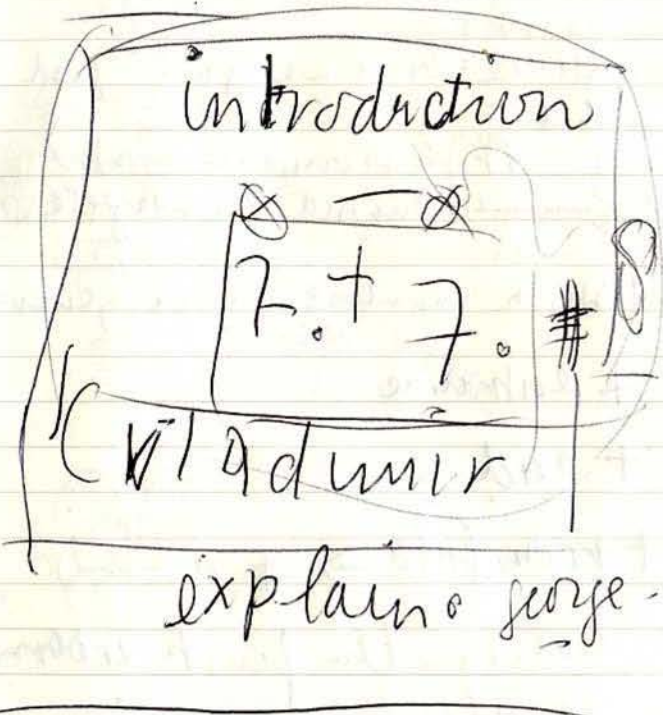 introduction
7. + 7. #
Vladimir
explain. george.